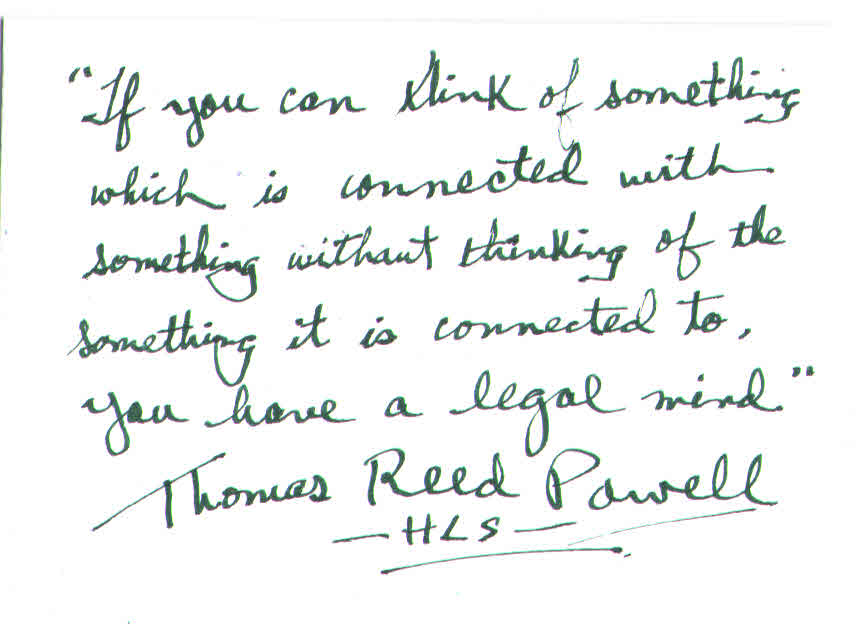 "If you can think of something
which is connected with
something without thinking of the
something it is connected to,
you have a legal mind."
Thomas Reed Powell
- HLS -